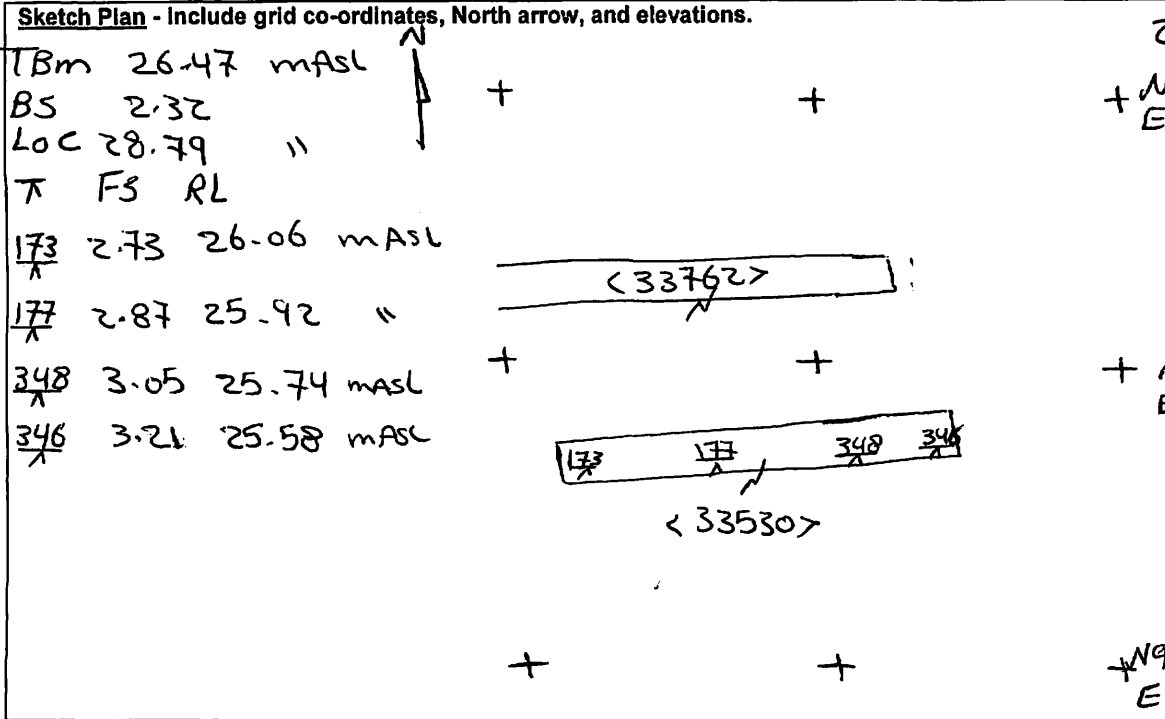 Sketch Plan - Include grid co-ordinates, North arrow, and elevations.
N
TBm 26.47 mASL
BS 2.32
LOC 28.79 "
⊼ FS RL
173 2.73 26.06 mASL
177 2.87 25.92 "
348 3.05 25.74 mASL
346 3.21 25.58 mASL
<33762>
173 177 348 346
<33530>
N
E
E
N9
E